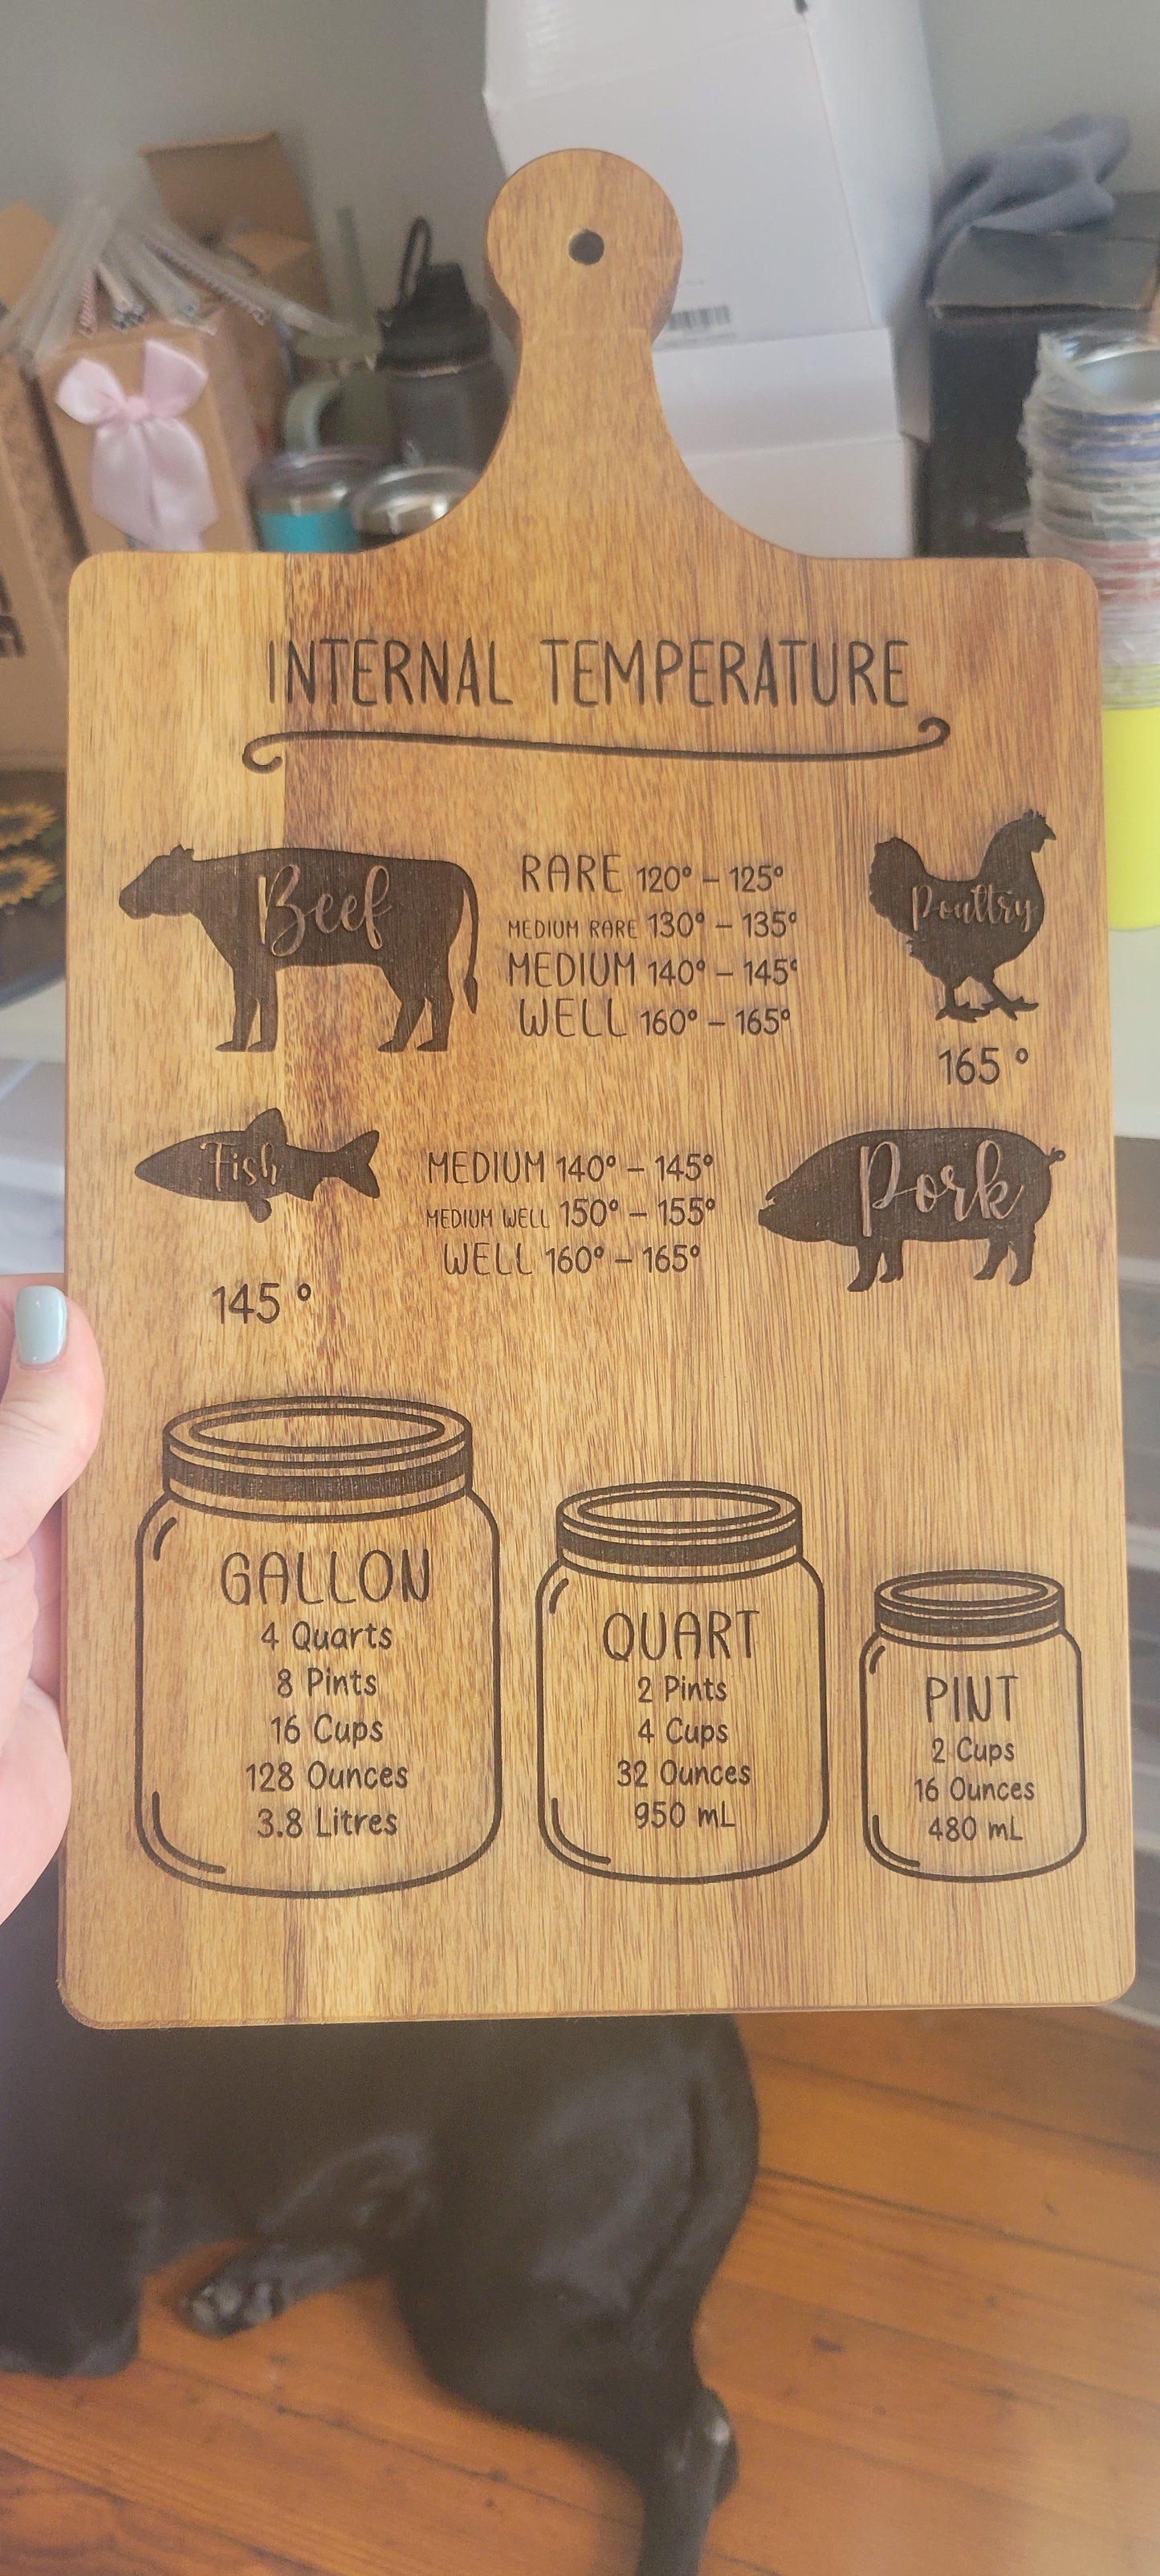 INTERNAL TEMPERATURE
Beef
RARE 120° – 125°
MEDIUM RARE 130° – 135°
MEDIUM 140° – 145°
WELL 160° – 165°
Poultry
165 °
Fish
145 °
MEDIUM 140° – 145°
MEDIUM WELL 150° – 155°
WELL 160° – 165°
Pork
GALLON
4 Quarts
8 Pints
16 Cups
128 Ounces
3.8 Litres
QUART
2 Pints
4 Cups
32 Ounces
950 mL
PINT
2 Cups
16 Ounces
480 mL